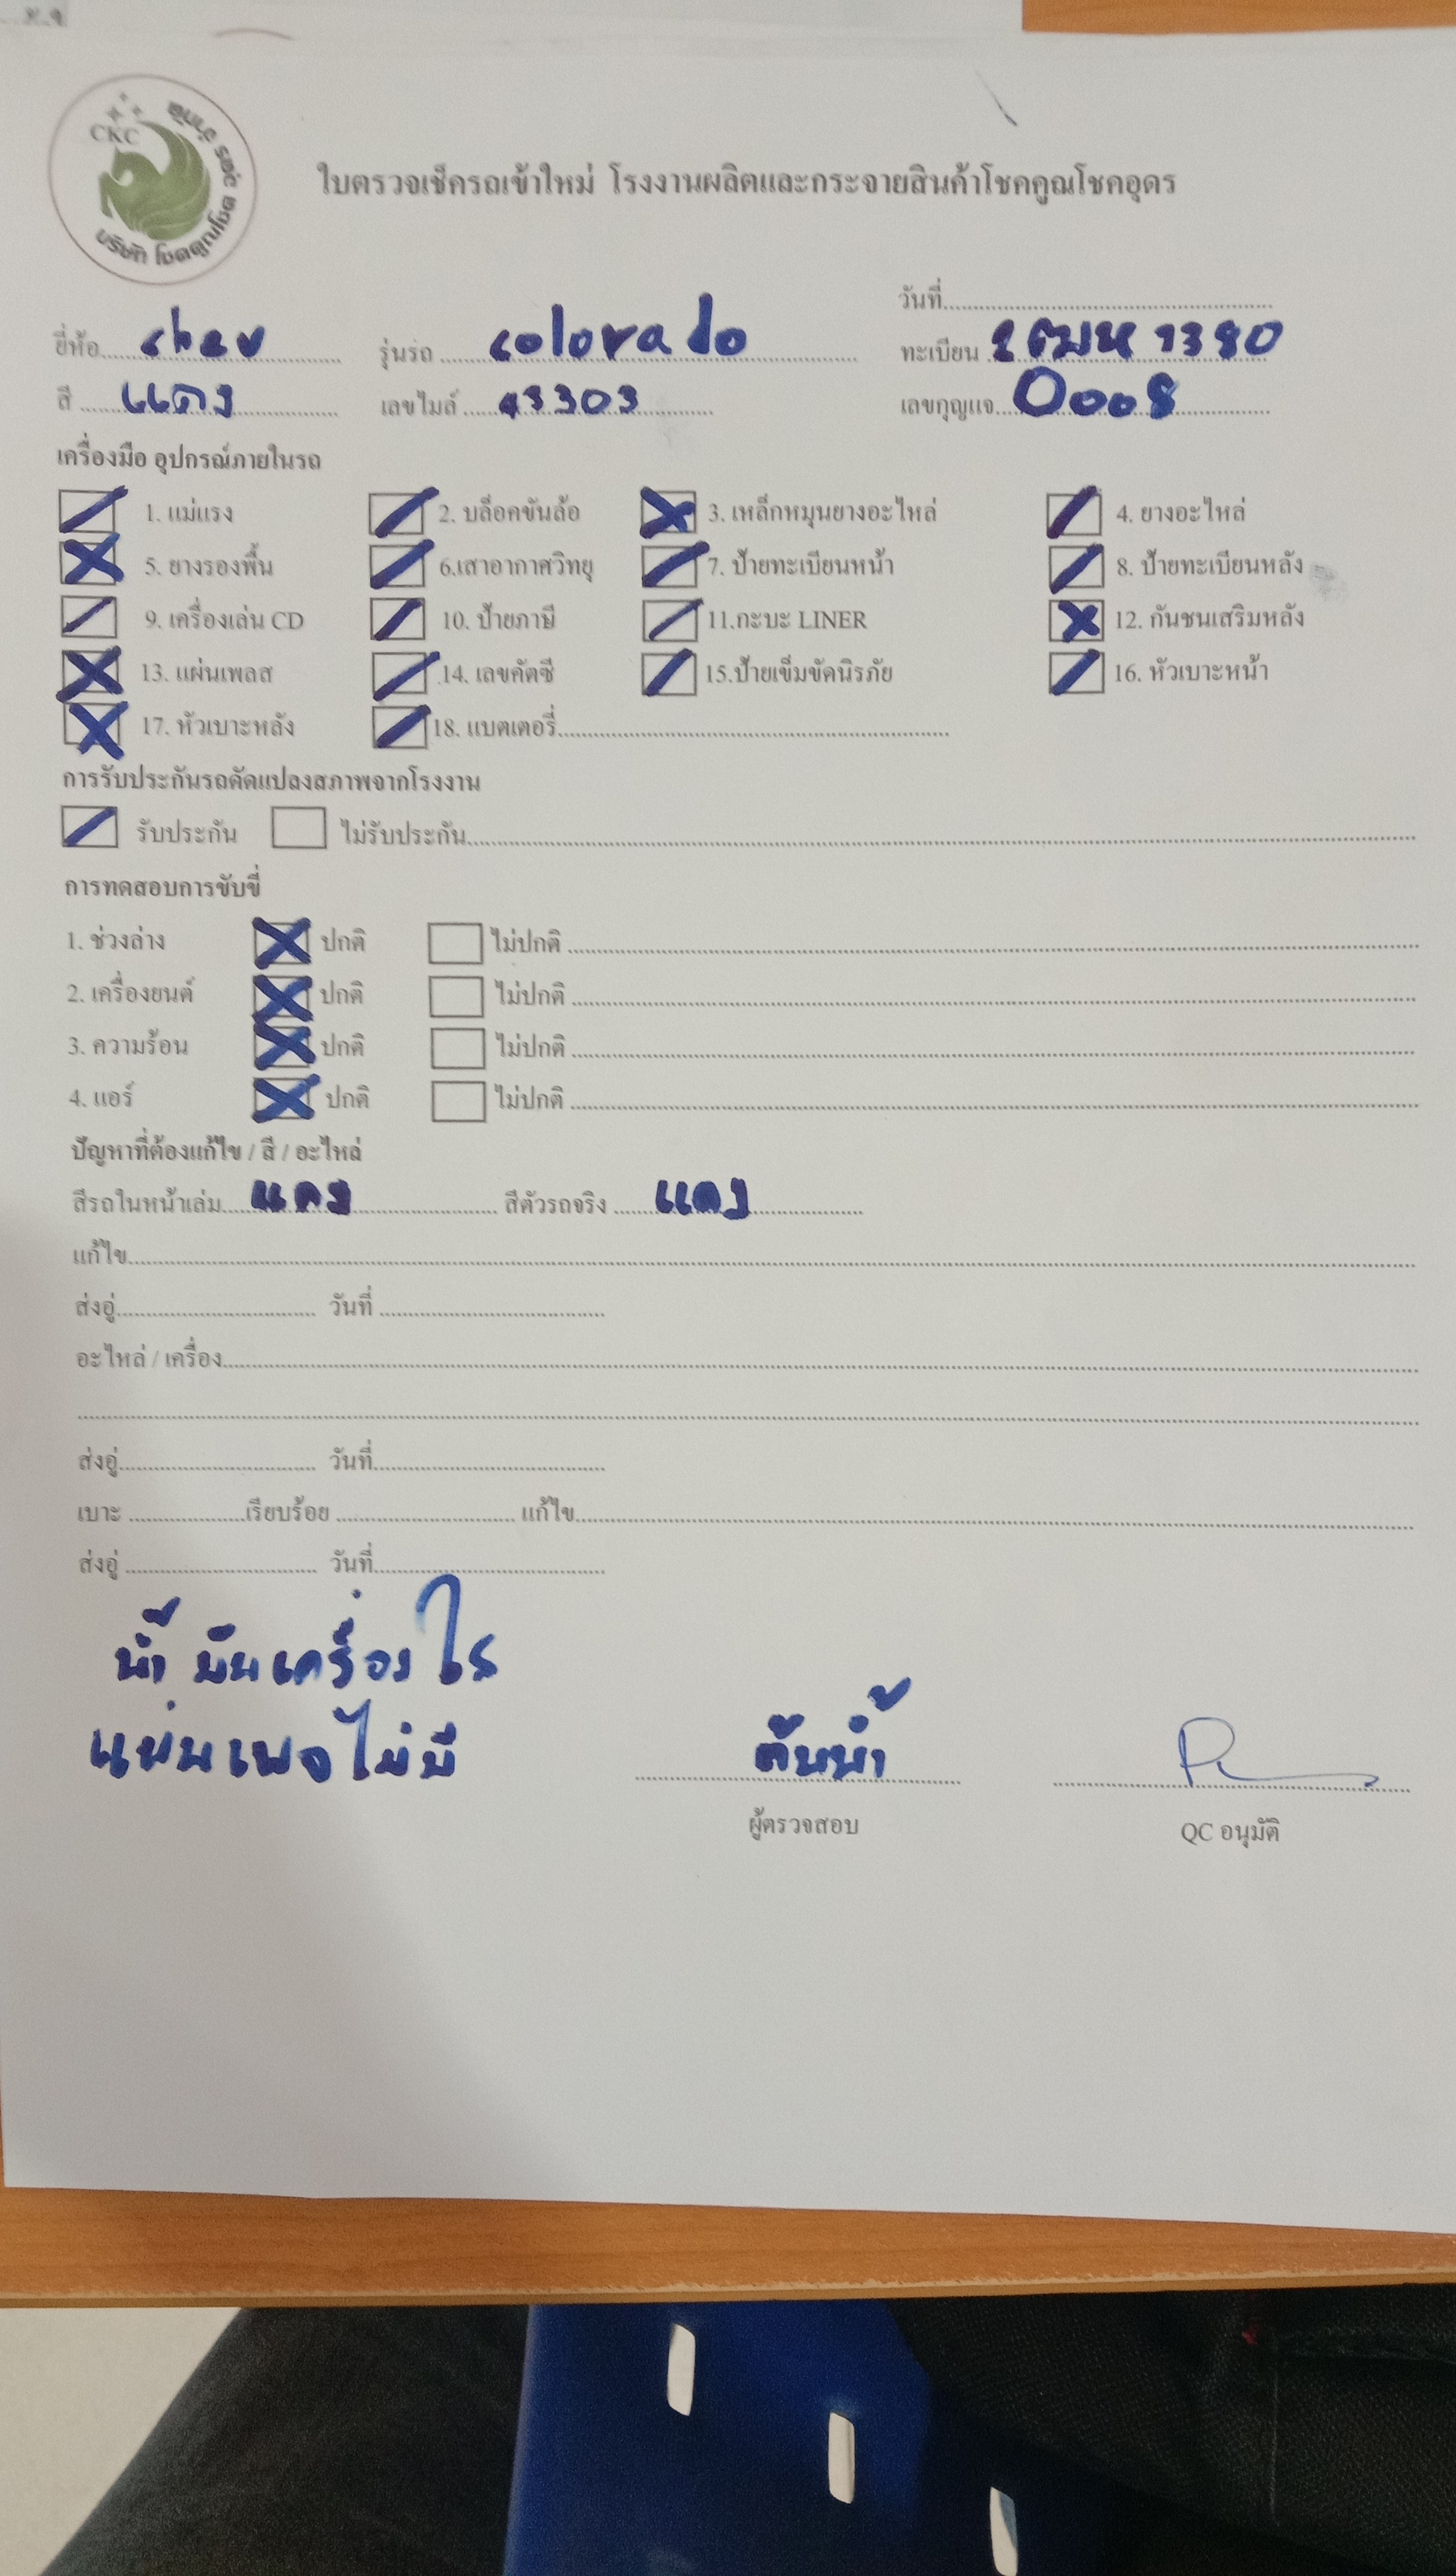 CKC
บริษัท โชคคูณโชค อุดร จำกัด
ใบตรวจเช็ครถเข้าใหม่ โรงงานผลิตและกระจายสินค้าโชคคูณโชคอุดร
วันที่
ยี่ห้อ chev รุ่นรถ colorado ทะเบียน 2ฒห 1380
สี แดง เลขไมล์ 43303 เลขกุญแจ 0008
เครื่องมือ อุปกรณ์ภายในรถ
1. แม่แรง 2. บล็อคขันล้อ 3. เหล็กหมุนยางอะไหล่ 4. ยางอะไหล่
5. ยางรองพื้น 6.เสาอากาศวิทยุ 7. ป้ายทะเบียนหน้า 8. ป้ายทะเบียนหลัง
9. เครื่องเล่น CD 10. ป้ายภาษี 11.กะบะ LINER 12. กันชนเสริมหลัง
13. แผ่นเพลส 14. เลขคัตซี 15.ป้ายเข็มขัดนิรภัย 16. หัวเบาะหน้า
17. หัวเบาะหลัง 18. แบตเตอรี่
การรับประกันรถดัดแปลงสภาพจากโรงงาน
รับประกัน ไม่รับประกัน
การทดสอบการขับขี่
1. ช่วงล่าง ปกติ ไม่ปกติ
2. เครื่องยนต์ ปกติ ไม่ปกติ
3. ความร้อน ปกติ ไม่ปกติ
4. แอร์ ปกติ ไม่ปกติ
ปัญหาที่ต้องแก้ไข / สี / อะไหล่
สีรถในหน้าเล่ม แดง สีตัวรถจริง แดง
แก้ไข
ส่งอู่ วันที่
อะไหล่ / เครื่อง
ส่งอู่ วันที่
เบาะ เรียบร้อย แก้ไข
ส่งอู่ วันที่
น้ำมันเครื่อง
แผ่นเพจไม่มี
ต้นน้ำ
ผู้ตรวจสอบ QC อนุมัติ